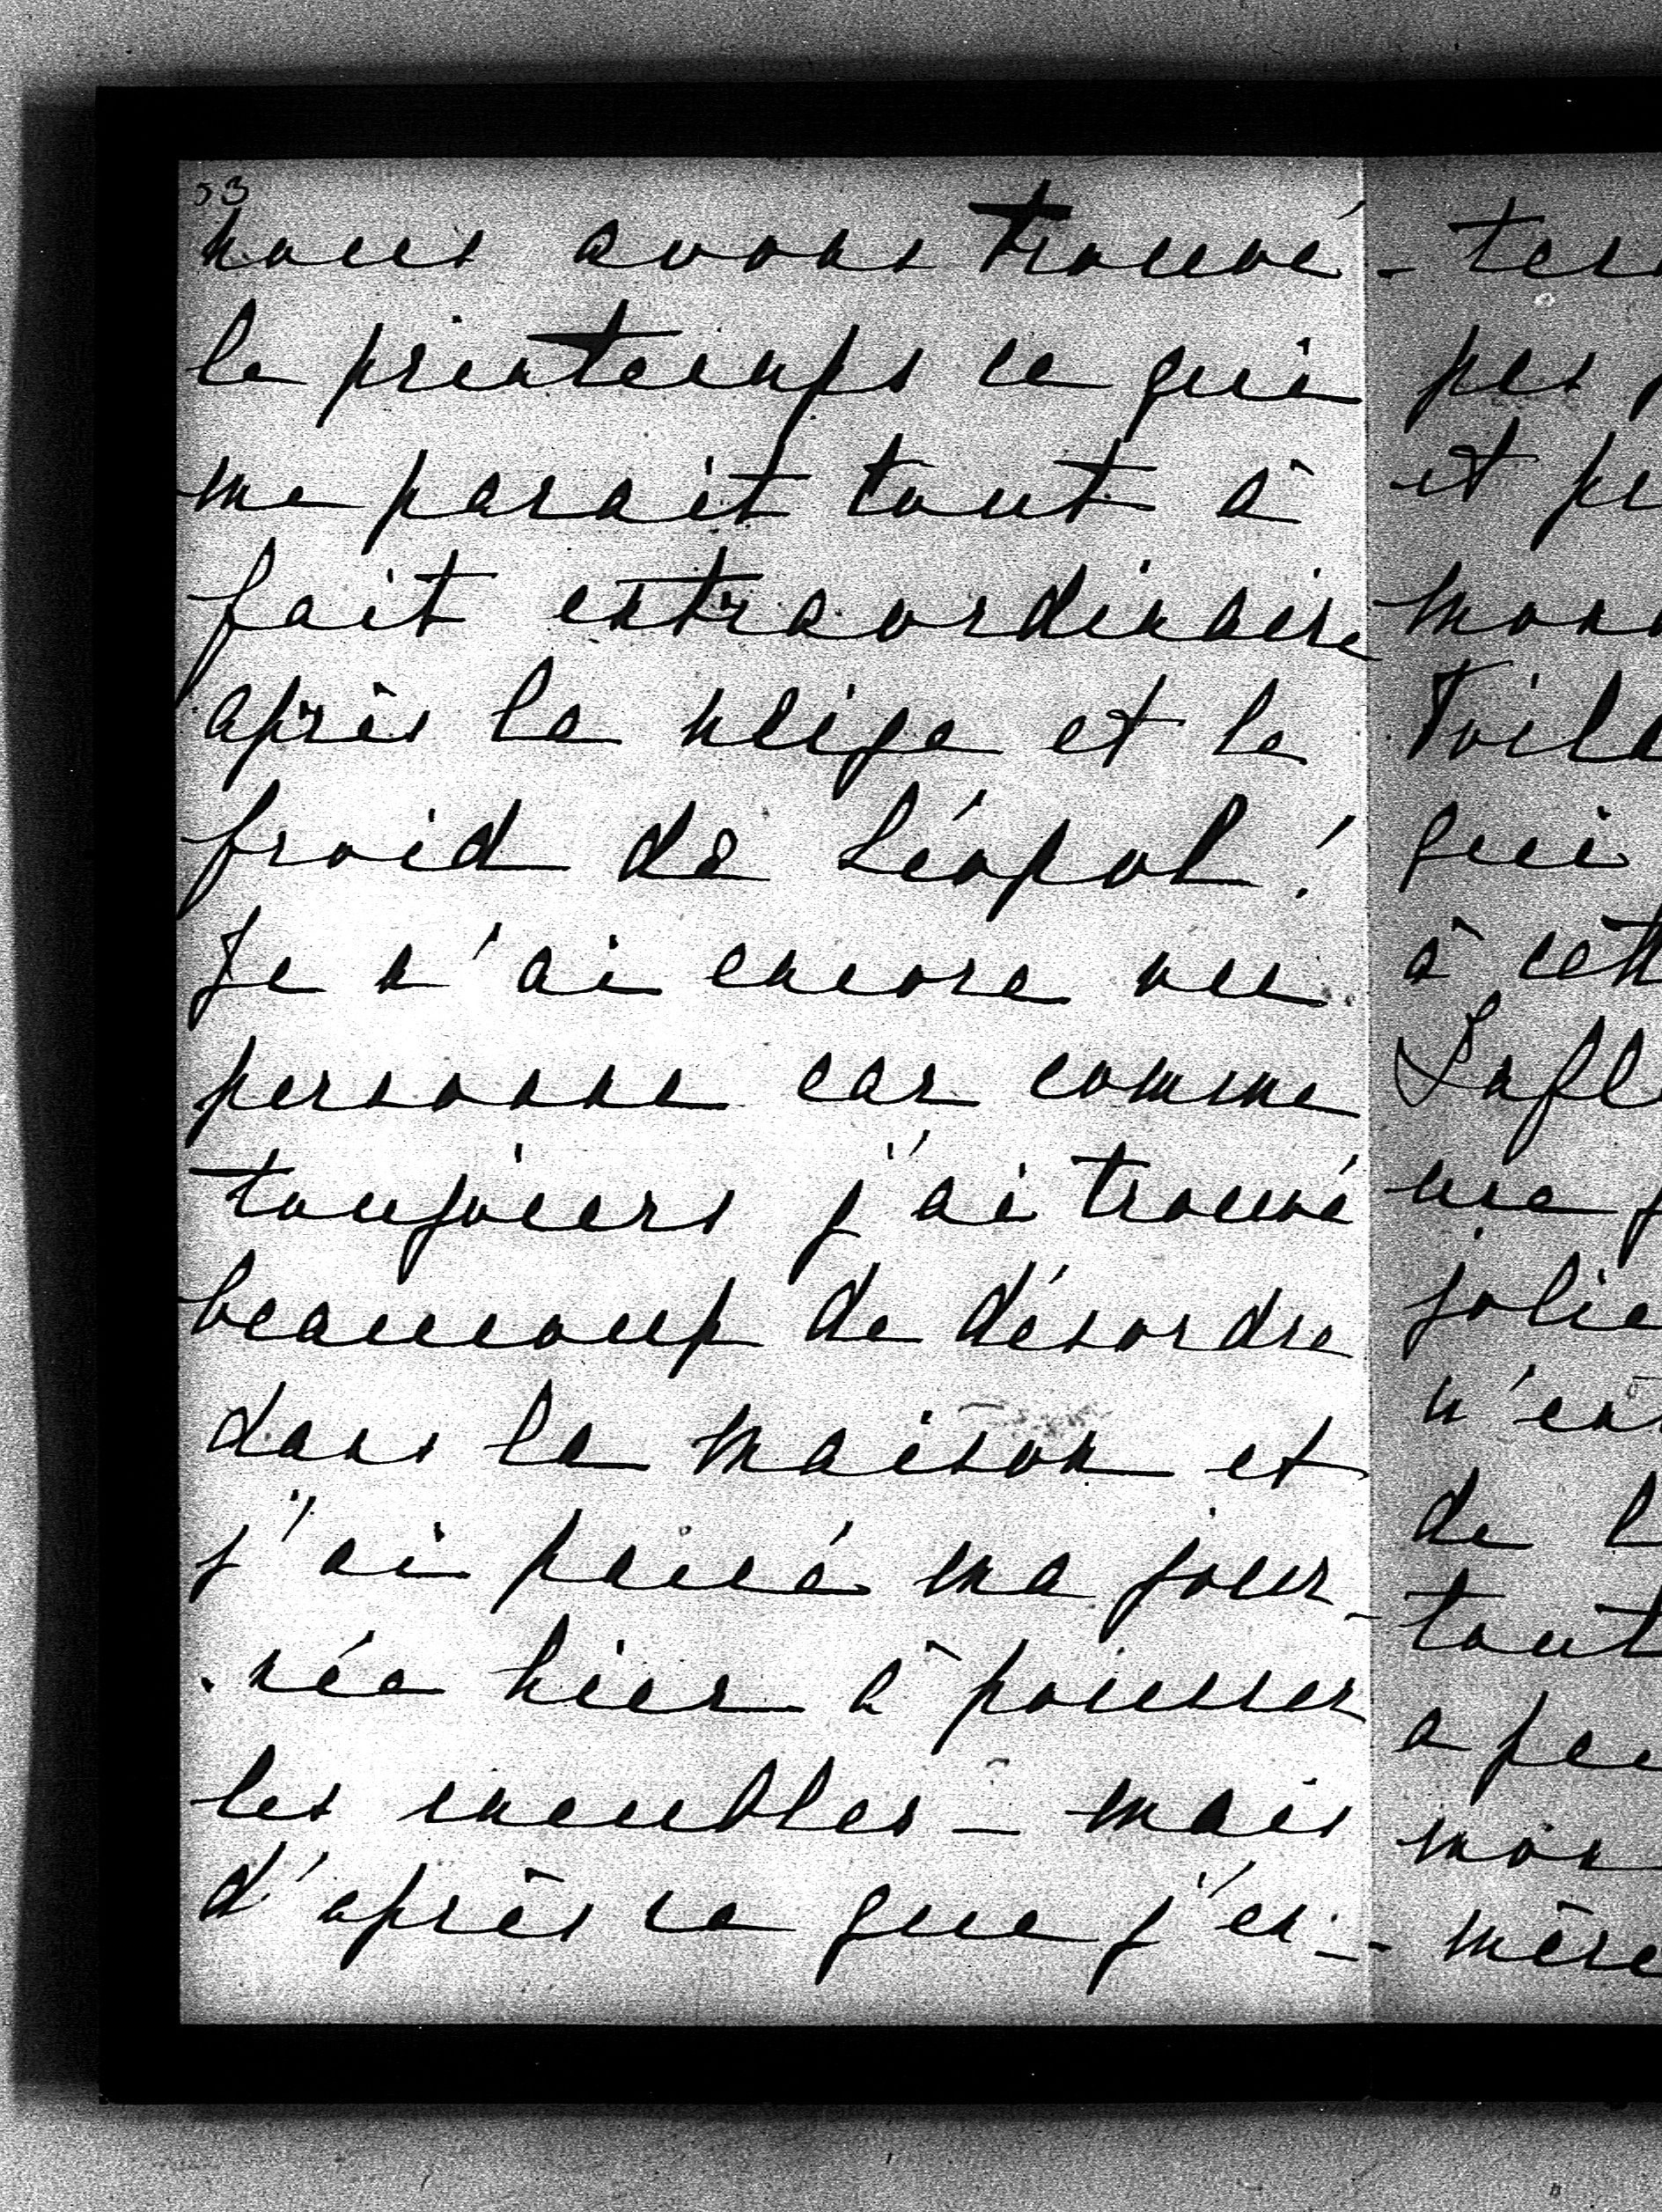 53
nous avons trouvé
le printemps ce qui
me parait tout à
fait extraordinaire
après la neige et le
froid de Léopol !
Je n'ai encore vu
personne car comme
toujours j'ai trouvé
beaucoup de désordre
dans la maison et
j'ai passé ma jour-
née hier à pousser
les meubles _ mais
d'après ce que j'en-
et
qui
jolie
de
tout
mère